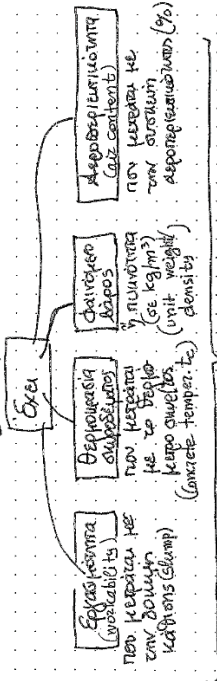 Έχει
Εργασιμότητα
(workability)
που μετράται με
την δοκιμή
κάθισης (Slump)
Θερμοκρασία
σκυροδέματος
που μετράται
με το θερμό-
μετρο σκυρ/τος
(concrete temper. tc)
Φαινόμενο
βάρος
ή πυκνότητα
(σε kg/m³)
(unit weight/
density
Αεροπεριεκτικότητα
(air content)
που μετράται με
την συσκευή
αεροπεριεκτικότητας (%)